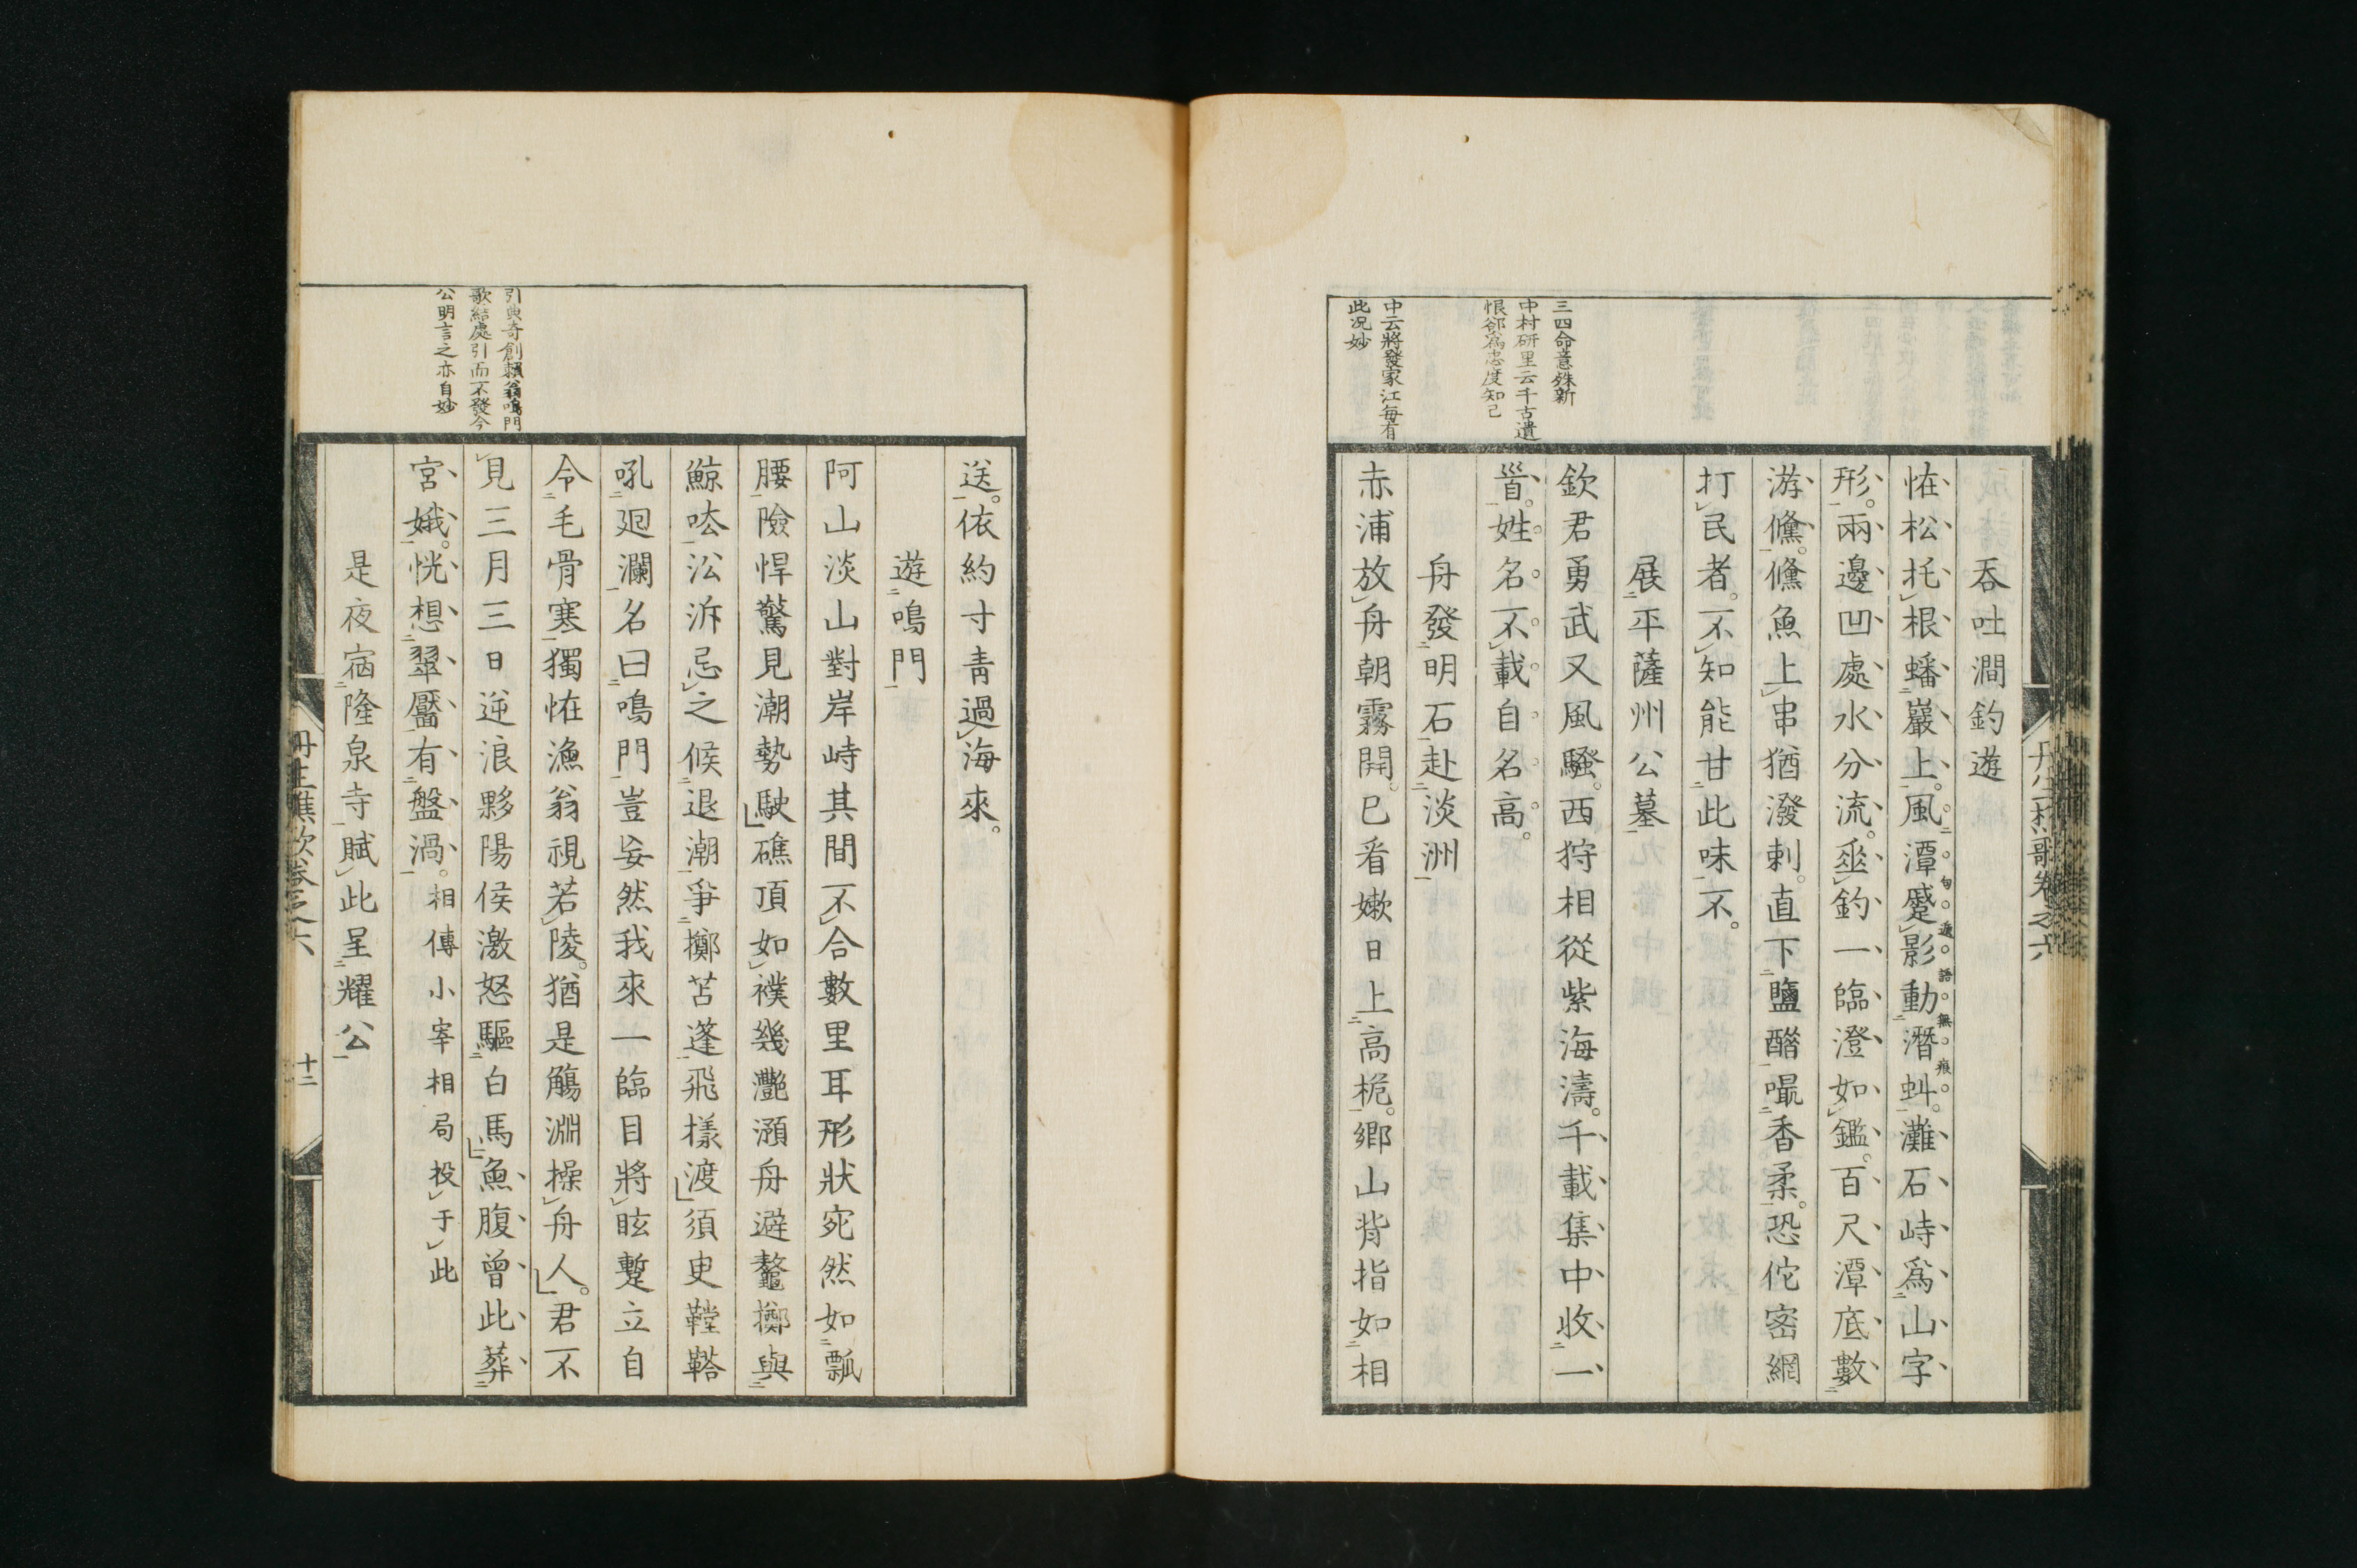 三四命意殊新
中村研里云千古遺
恨卻爲忠度知己
中云將發家江每有
此况妙
吞吐澗釣遊
恠松托根蟠巖上風潭蹙影動潛虯灘石峙爲山字
句遒語無痕
形兩邊凹處水分流垂釣一臨澄如鑑百尺潭底數
游鯈鯈魚上串猶潑剌直下鹽醯嘬香柔恐佗密網
打民者不知能甘此味不
展平薩州公墓
欽君勇武又風騷西狩相從紫海濤千載集中收一
首姓名不載自名高
舟發明石赴淡洲
赤浦放舟朝霧開已看嫰日上高桅鄉山背指如相
丹生樵歌卷之六
引典奇創賴翁鳴門
歌結處引而不發今
公明言之亦自妙
送依約寸靑過海來
遊鳴門
阿山淡山對岸峙其間不合數里耳形狀宛然如瓢
腰險悍驚見潮勢駛礁頂如襆幾灧澦舟避鼇擲與
鯨呿㳂泝忌之候退潮爭擲苫蓬飛樣渡須史鞺鞳
吼廻瀾名曰鳴門豈妄然我來一臨目將眩蹔立自
令毛骨寒獨恠漁翁視若陵猶是觴淵操舟人君不
見三月三日逆浪夥陽侯激怒驅白馬魚腹曾此葬
宮娥恍想翠靨有盤渦相傳小宰相局投于此
是夜宿隆泉寺賦此呈耀公
丹生樵歌卷之六
十二